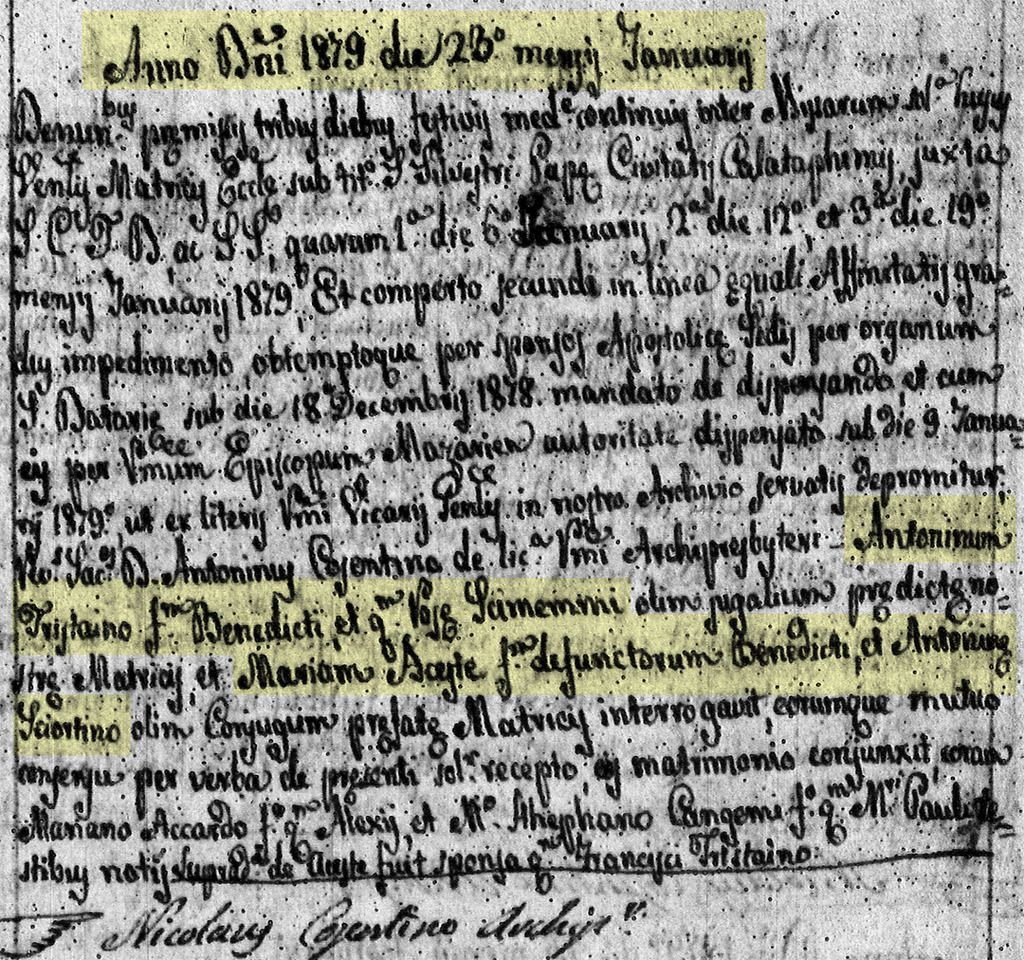 Anno Dñi 1879 die 23.º mensis Januarij
Denun.bus premissis tribus diebus festivis med.e continuis inter Missarum sol.a hujus
Ven.lis Matricis Eccle sub tit.º S. Silvestri Pape Civitatis Calataphimis, juxta
S. C. T. D. ac S. S. quarum 1.a die 6.º Januarij, 2.a die 12.º, et 3.a die 19.º
mensis Januarij 1879. Et comperto secundi in linea equali Affinitatis gra=
dus impedimento, obtemptoque per sponsos Apostolice Sedis per organum
S. Datarie sub die 18. Decembris 1878. mandato de dispensando, et cum
eis per Episcopum Mazarien autoritate dispensato sub die 9. Janua=
rij 1879. ut ex literis Vicarij Gen.lis in nostro Archivio servatis depromitur,
Rev. Sac. D. Antoninus Cosentino de lic.a Archipresbyteri Antoninum
Tristaino f.m Benedicti, et q.m Scimemmi olim jugalium predicte no=
stre Matricis, et Mariam Aceste f.m defunctorum Benedicti, et Antonine
Sciortino olim Conjugum prefate Matricis interrogavit, eorumque mutuo
consensu per verba de presenti sol.r recepto, eos matrimonio conjunxit, coram
Mariano Accardo f.º q.m Alexij, et M.º Stephano Cangemi f.º q.m M.ri Pauli te=
stibus notis suprad.a de Aceste fuit sponsa q.m Francisci Tristaino.
Nicolaus Cosentino Archip.r